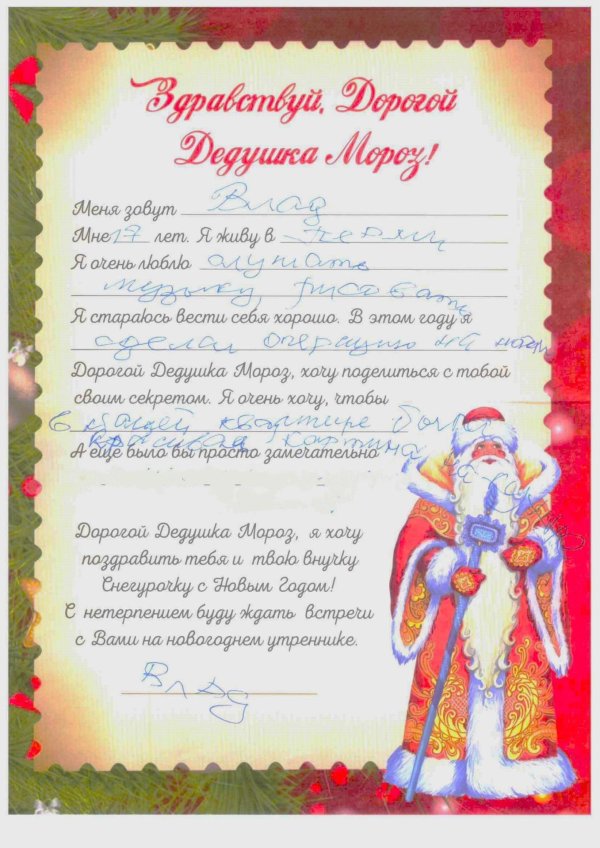 Здравствуй, Дорогой
Дедушка Мороз!
Меня зовут Влад
Мне 17 лет. Я живу в Перми
Я очень люблю слушать
музыку, рисовать
Я стараюсь вести себя хорошо. В этом году я
сделал операцию на ноги
Дорогой Дедушка Мороз, хочу поделиться с тобой
своим секретом. Я очень хочу, чтобы
в нашей квартире была
красивая картина
А ещё было бы просто замечательно
Дорогой Дедушка Мороз, я хочу
поздравить тебя и твою внучку
Снегурочку с Новым Годом!
С нетерпением буду ждать встречи
с Вами на новогоднем утреннике.
Влад